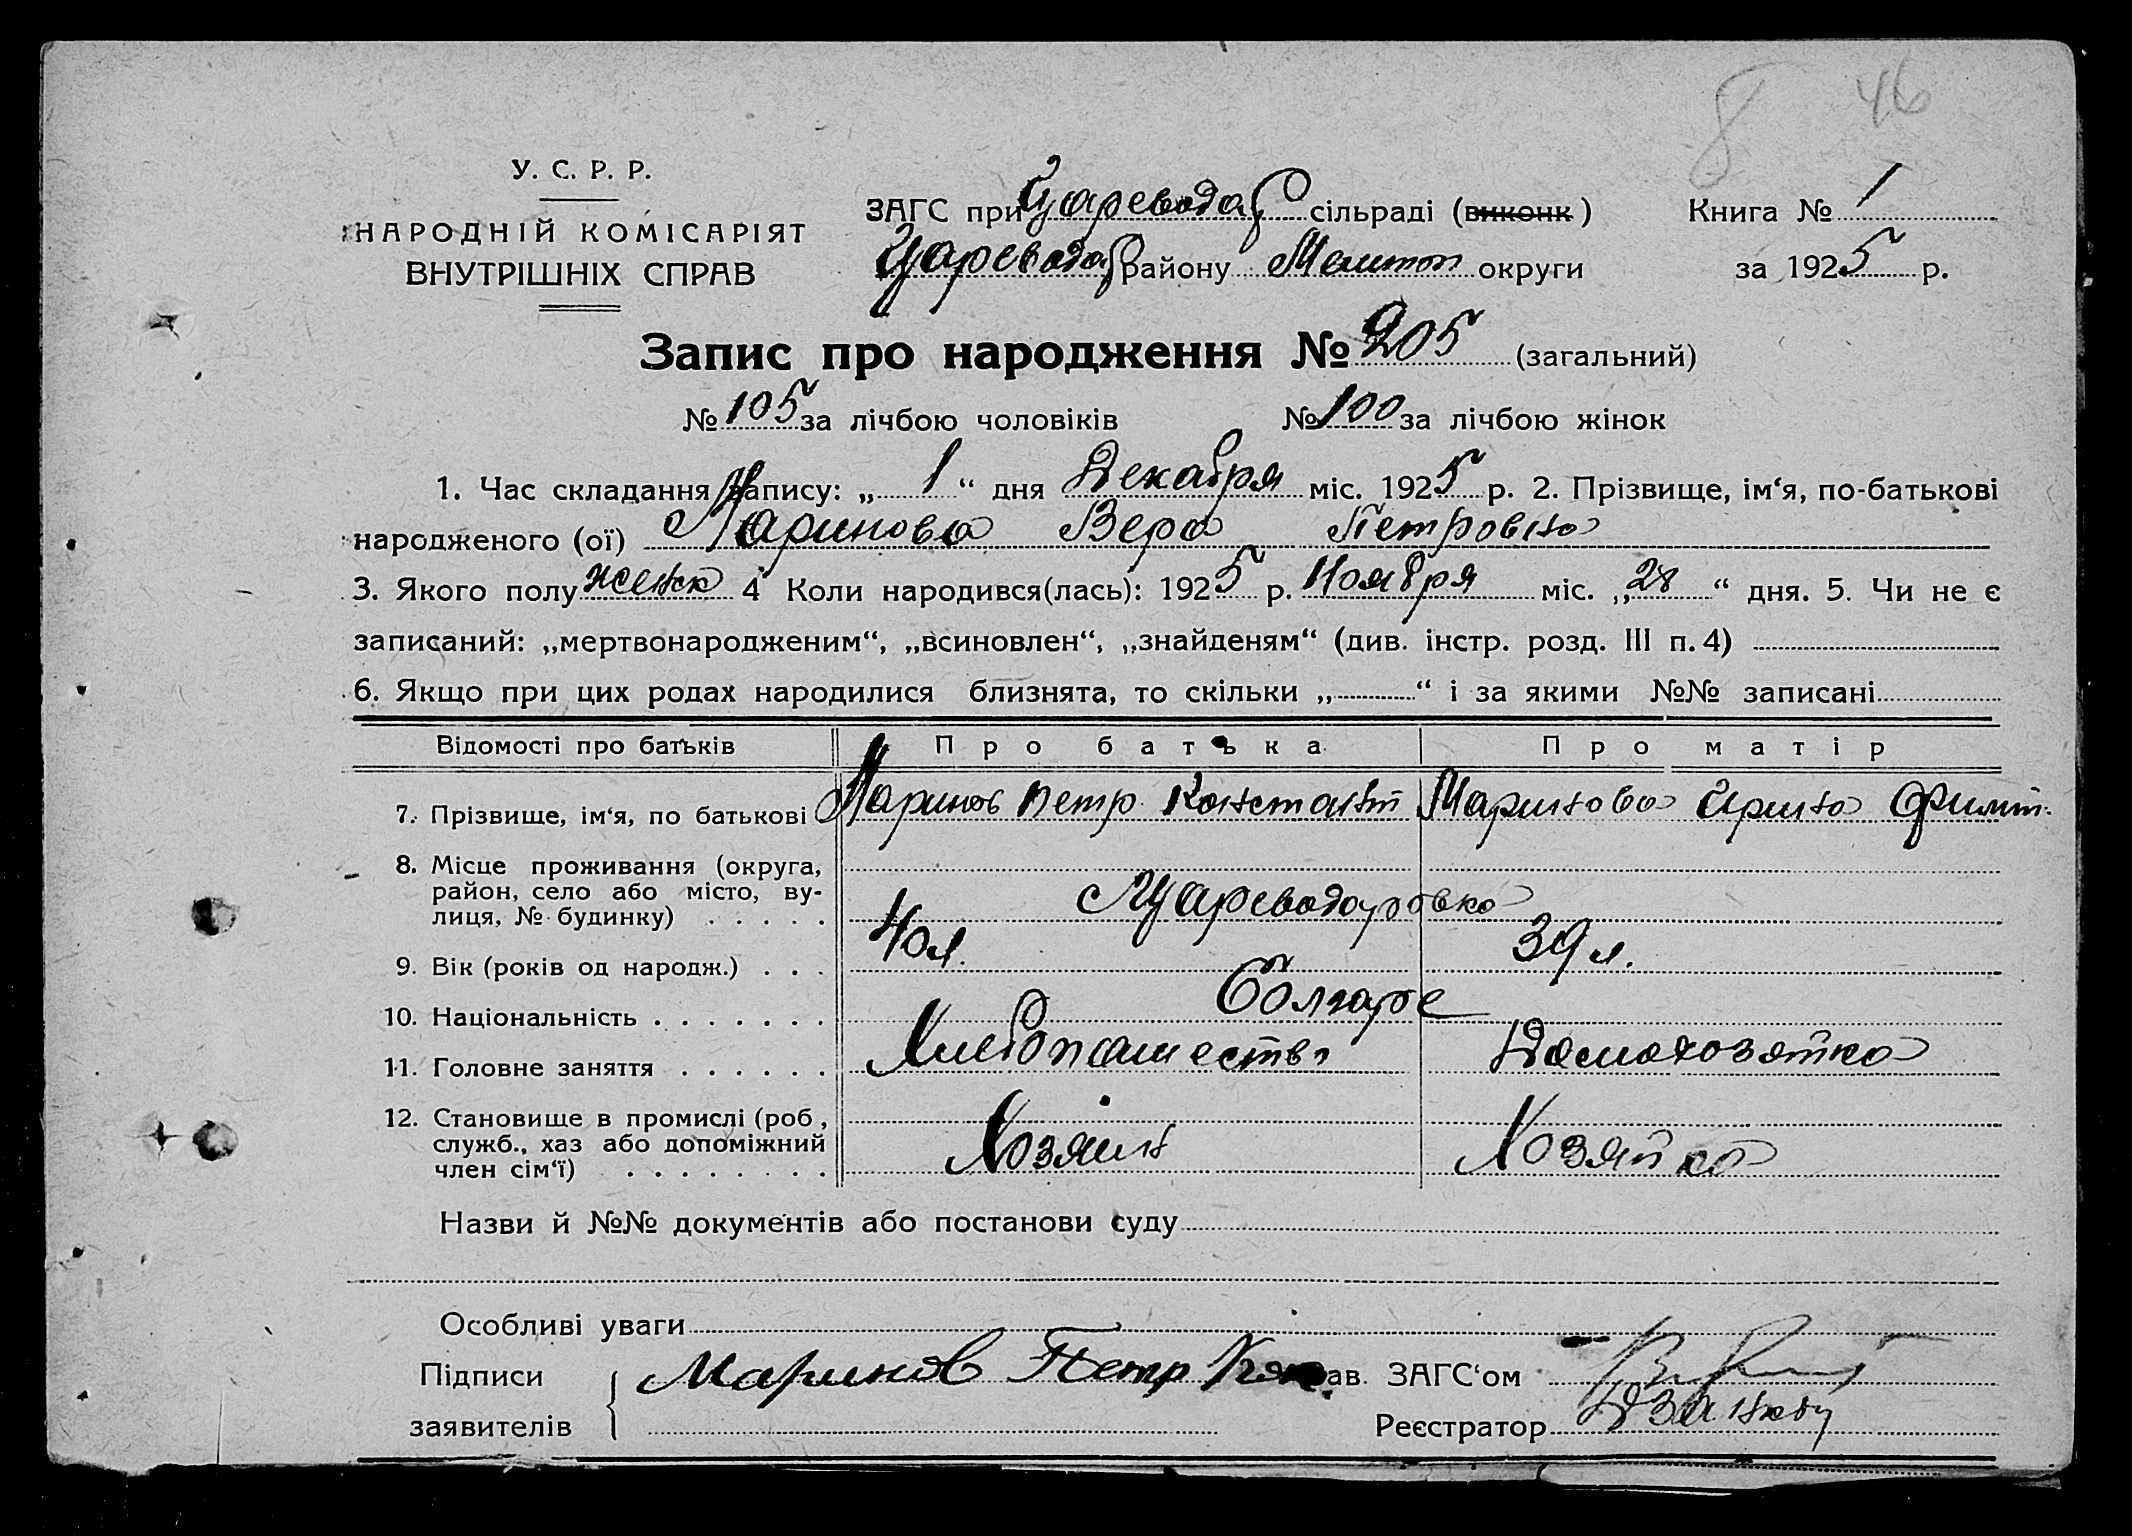 8 46
У. С. Р. Р.
НАРОДНІЙ КОМІСАРІЯТ
ВНУТРІШНІХ СПРАВ
ЗАГС при Царевода сільраді (виконк)
Царевода району Мелитоп округи
Книга № 1
за 1925 р.
Запис про народження № 205 (загальний)
№ 105 за лічбою чоловіків № 100 за лічбою жінок
1. Час складання запису: „ 1 “ дня Декабря міс. 1925 р. 2. Прізвище, ім‘я, по-батькові
народженого (ої) Маринова Вера Петровна
3. Якого полу женск 4 Коли народився(лась): 1925 р. Ноября міс. „ 28 “ дня. 5. Чи не є
записаний: „мертвонародженим“, „всиновлен“, „знайденям“ (див. інстр. розд. III п. 4)
6. Якщо при цих родах народилися близнята, то скільки „ “ і за якими №№ записані
Відомості про батьків Про батька Про матір
7. Прізвище, ім‘я, по батькові Маринов Петр Констант Маринова Ирина
8. Місце проживання (округа,
район, село або місто, ву-
лиця, № будинку) Цареводаровка
9. Вік (років од народж.) 40 л. 39 л.
10. Національність Болгаре
11. Головне заняття Хлибопашество Домохозяйка
12. Становище в промислі (роб,
служб., хаз або допоміжний
член сім‘ї) Хозяин Хозяйка
Назви й №№ документів або постанови суду
Особливі уваги
Підписи Маринов Петр ав. ЗАГС‘ом
заявителів Реєстратор